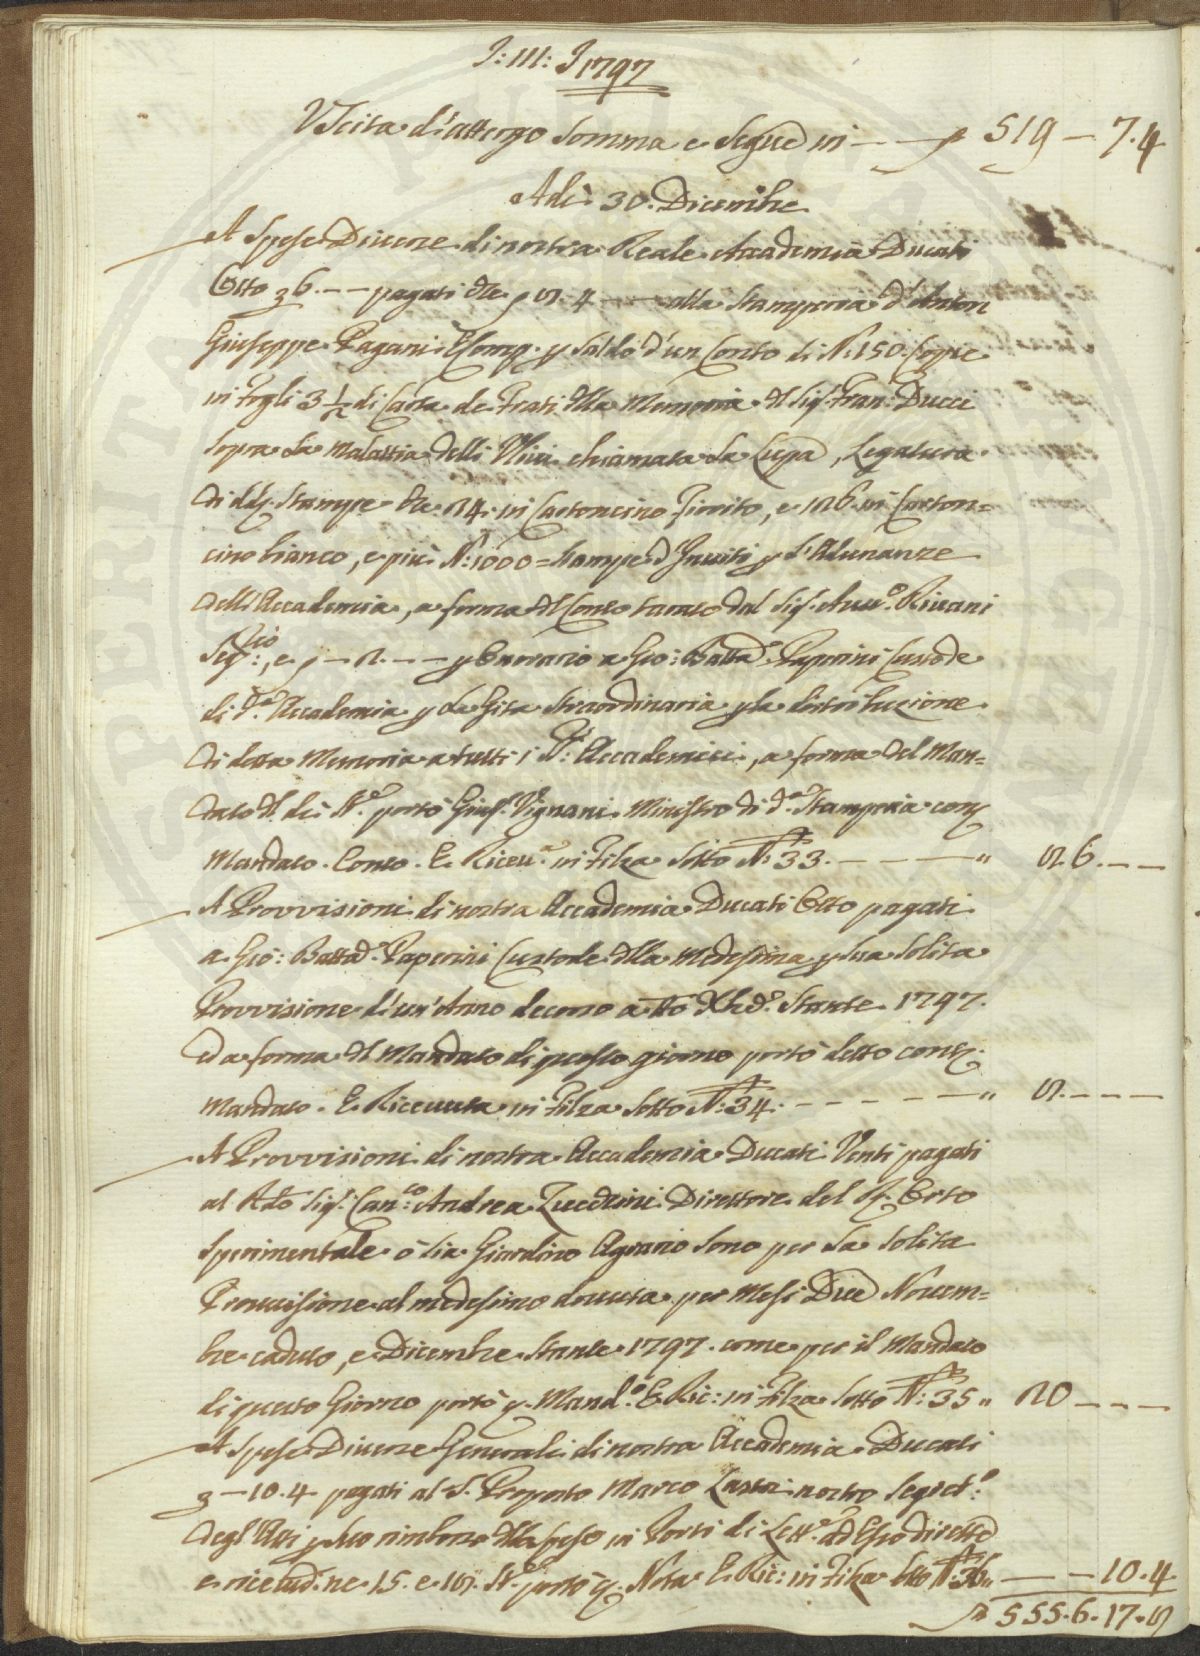 J: M: J 1797
Uscita d'attergo Somma e Segue in — — 519 — 7.4
Adì 30. Dicembre
A Spese Diverse di nostra Reale Accademia Ducati
Otto 6. — — pagati 4 — — alla Stamperia d'Anton
Giuseppe Pagani, e Comp. p Saldo d'un Conto di N: 150. Copie
in Fogli 3 ½ di Carta de Frati della Memoria del Sig.r Fran: Ducci
sopra la Malattia delli Ulivi chiamata la Lupa, Legatura
di Stampe in Cartoncino Fiorito, e in Carton=
cino bianco, e più N: 1000 = Stampe d'Inviti p l'Adunanze
dell'Accademia, a forma del Conto tarato dal Sig.r Avv.o Rivani
Seg.rio, e — — — p Onorario a Gio: Batta Paperini Custode
di d.a Accademia p la Gita Straordinaria p la distribuzione
di detta Memoria a tutti i SS: Accademici, a forma del Man=
dato portò Gius.e Vignani Ministro di d.a Stamperia con
Mandato. Conto. E. Ricev.a in Filza Sotto N: 33. — — — " 6. — —
A Provvisioni di nostra Accademia Ducati Otto pagati
a Gio: Batta Paperini Custode della Medesima p sua Solita
Provvisione d'un'Anno decorso a tutto Xbre Stante 1797.
ed a forma del Mandato di questo giorno portò detto
Mandato. E. Ricevuta in Filza Sotto N: 34. — — — — — " — — —
A Provvisioni di nostra Accademia Ducati Venti pagati
al Sig.r Can.co Andrea Zucchini Direttore del R. Orto
Sperimentale o sia Giardino Agrario sono per la solita
Provvisione al medesimo dovuta per Mesi Due Novem=
bre caduto, e Dicembre Stante 1797. come per il Mandato
di questo Giorno portò Mand.o E. Ric: in Filza Sotto N: 35 " 20 — — —
A Spese Diverse Generali di nostra Accademia Ducati
— 10. 4 pagati al S. Proposto Marco Lastri nostro Segret.o
degl'Atti rimborso della Spesa in Porti di Lett.e ad Esso dirette
e ricevute 15. e portò Nota E. Ric: in Filza Sotto N: 36 " — — 10. 4
555. 6. 17.